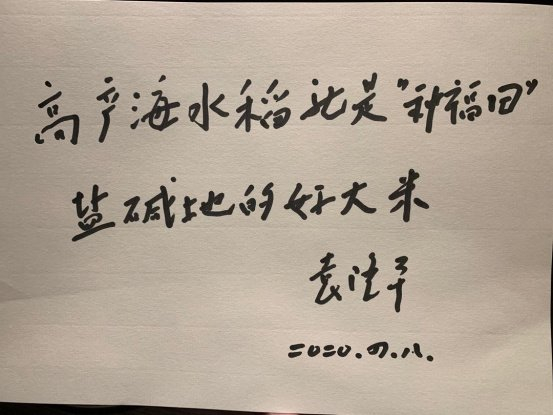 高产海水稻就是"种福田"
盐碱地的好大米
袁隆平
二0二0.四.八.